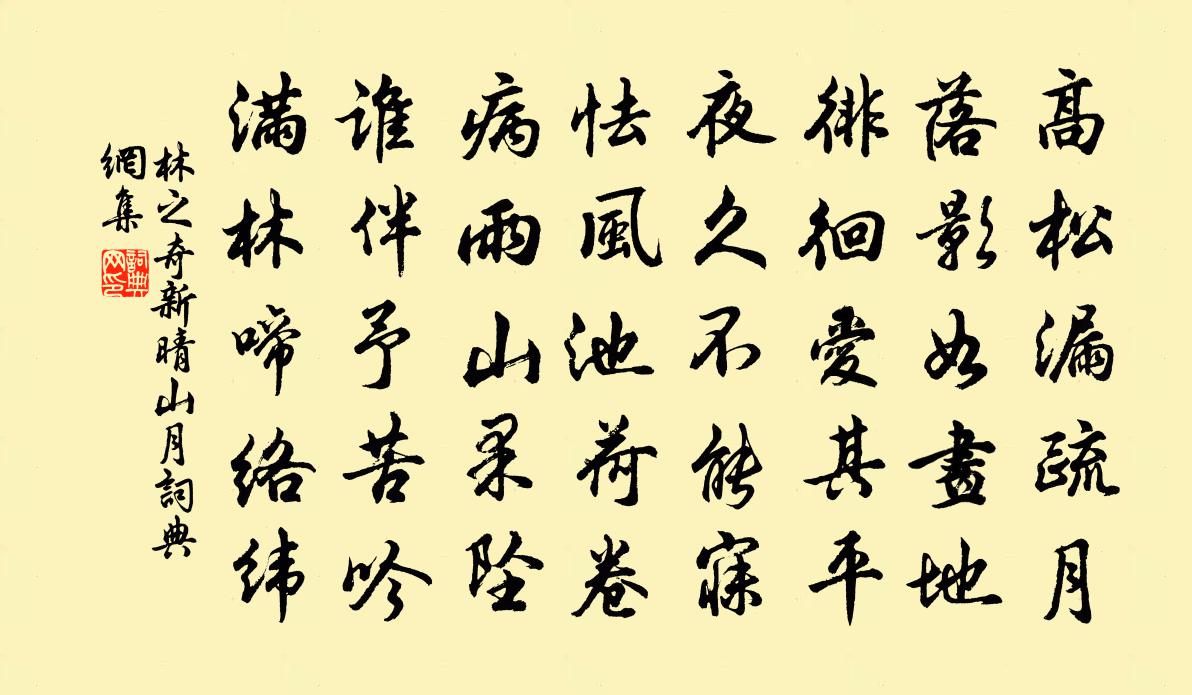 高松漏疏月
落影如畫地
徘徊愛其平
夜久不能寐
怯風池荷卷
病雨山果墜
誰伴予苦吟
滿林啼絡緯
林之奇新晴山月詞典
網集
詞典
网印